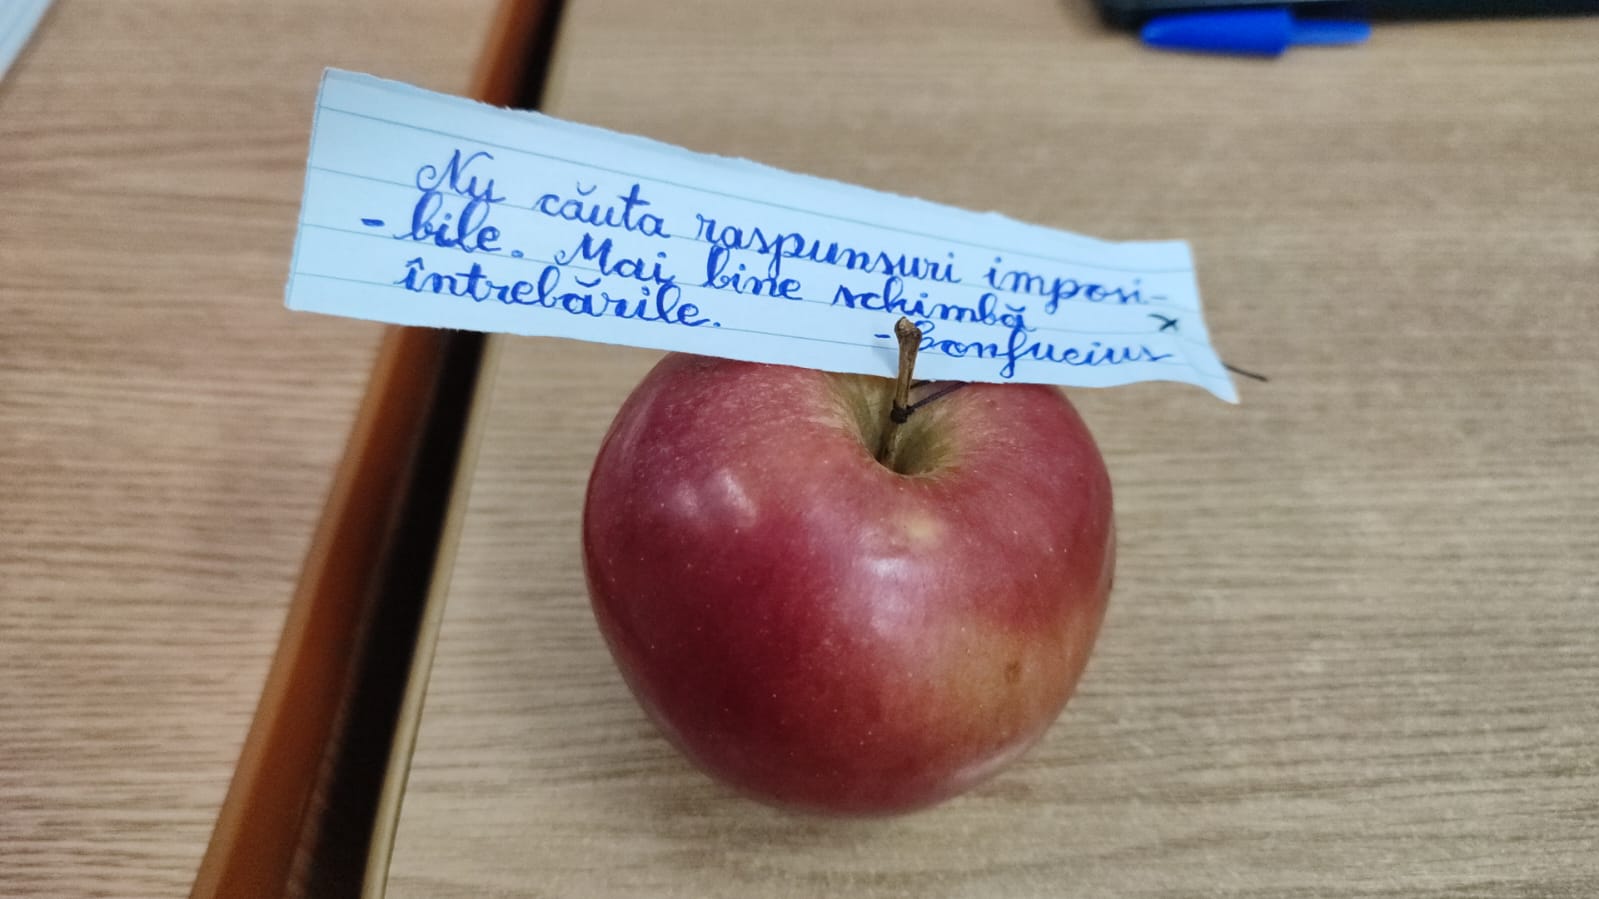 Nu căuta raspunsuri imposi-
- bile. Mai bine schimbă
întrebările.
- Confucius